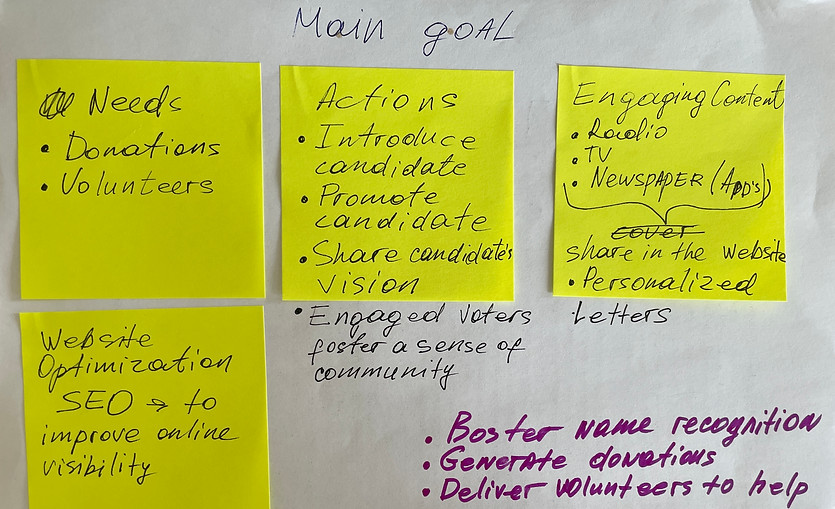 Main goal
Needs
• Donations
• Volunteers
Actions
• Introduce
candidate
• Promote
candidate
• Share candidate's
vision
• Engaged voters
foster a sense of
community
Engaging Content
• Radio
• TV
• Newspaper (App's)
cover
share in the website
• Personalized
Letters
Website
Optimization
SEO → to
improve online
visibility
• Boster name recognition
• Generate donations
• Deliver volunteers to help